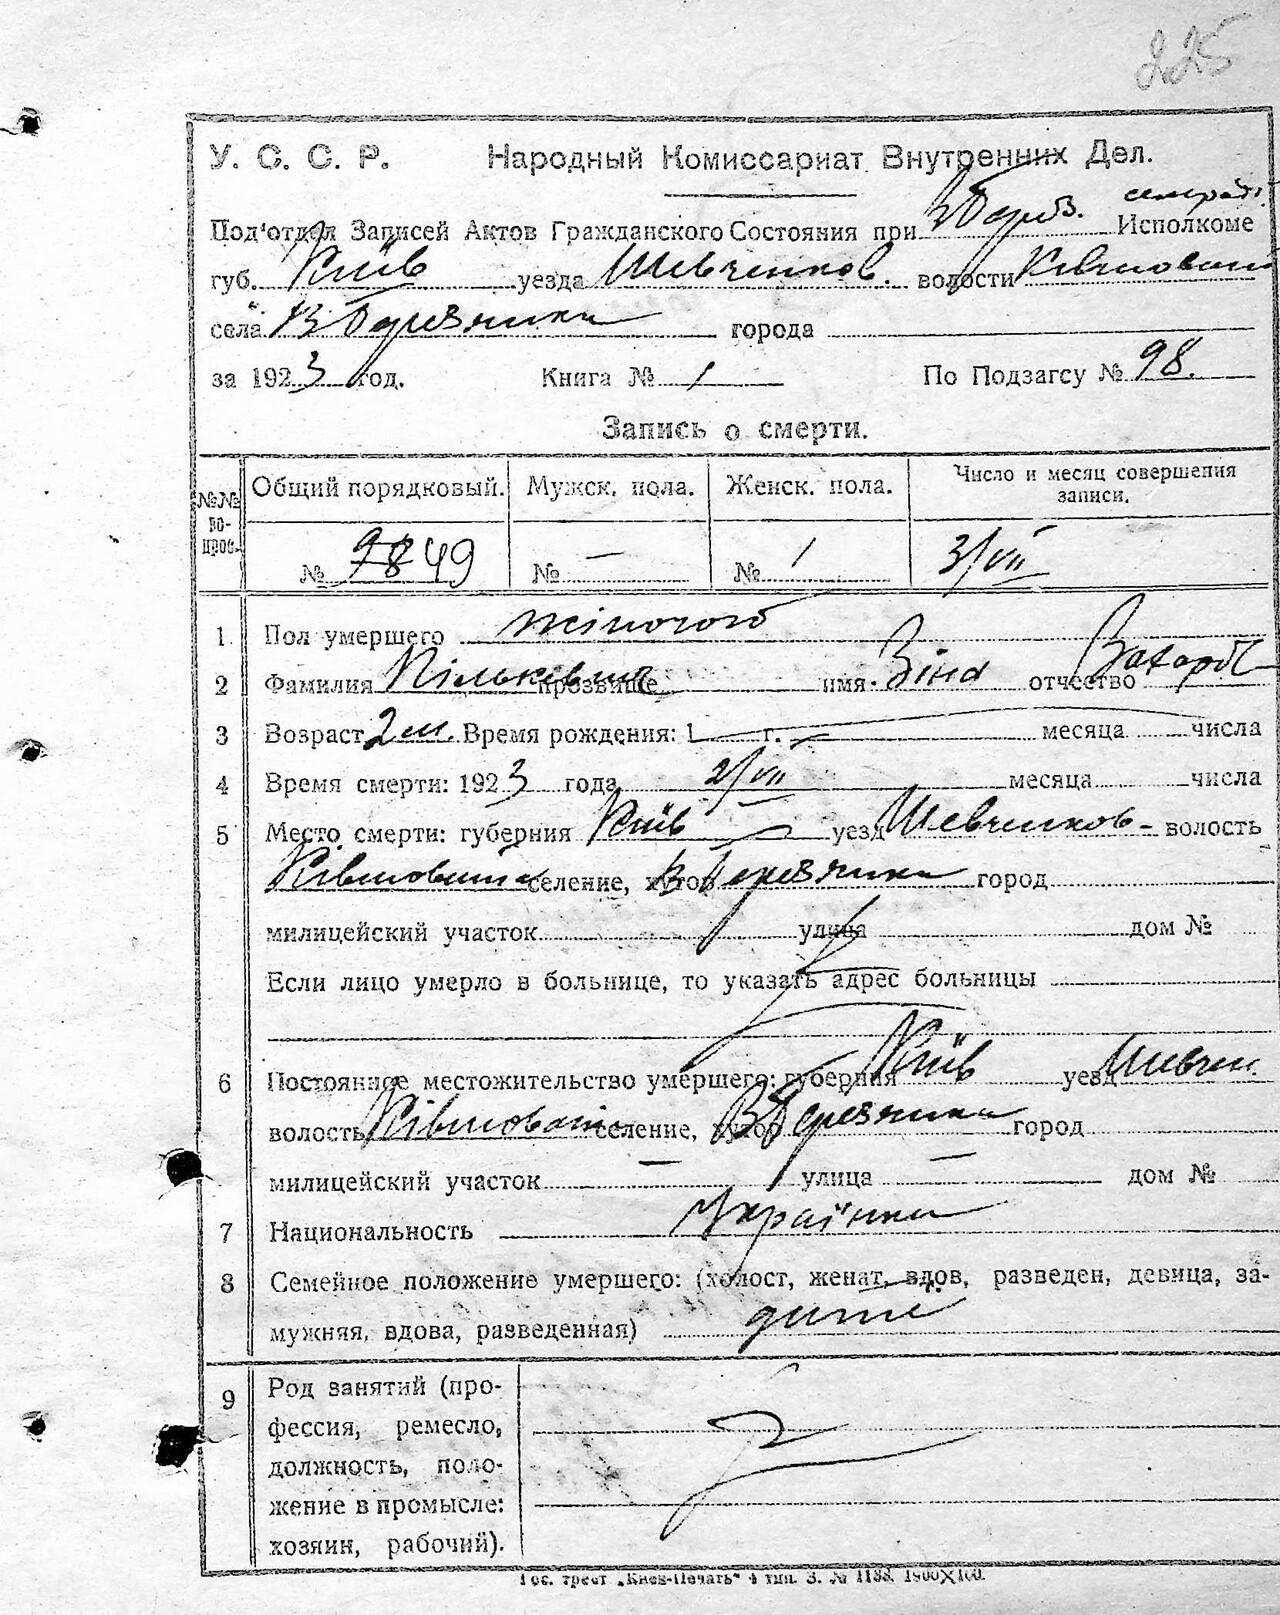 225
У. С. С. Р. Народный Комиссариат Внутренних Дел.
Под'отдел Записей Актов Гражданского Состояния при В Берез. Исполкоме
губ. Київ уезда Шевченков. волости
села В Березянка города
за 1923 год. Книга № 1 По Подзагсу № 98.
Запись о смерти.
№№ вопрос. Общий порядковый. Мужск. пола. Женск. пола. Число и месяц совершения записи.
№ 98 49 № — № 1 3/VII
1 Пол умершего жіночого
2 Фамилия прозвище имя Зіна отчество Захаров
3 Возраст 2 м. Время рождения: 1 г. месяца числа
4 Время смерти: 1923 года 2/VII месяца числа
5 Место смерти: губерния Київ уезд Шевченков- волость
селение, хутор В Березянка город
милицейский участок улица дом №
Если лицо умерло в больнице, то указать адрес больницы
6 Постоянное местожительство умершего: губерния Київ уезд Шевчен.
волость селение, хутор В Березянка город
милицейский участок — улица — дом №
7 Национальность Українка
8 Семейное положение умершего: (холост, женат, вдов, разведен, девица, за-
мужняя, вдова, разведенная) дитя
9 Род занятий (про-
фессия, ремесло,
должность, поло-
жение в промысле:
хозяин, рабочий).
Гос. трест „Киев-Печать" 4 тип. З. № 1188. 1900×100.